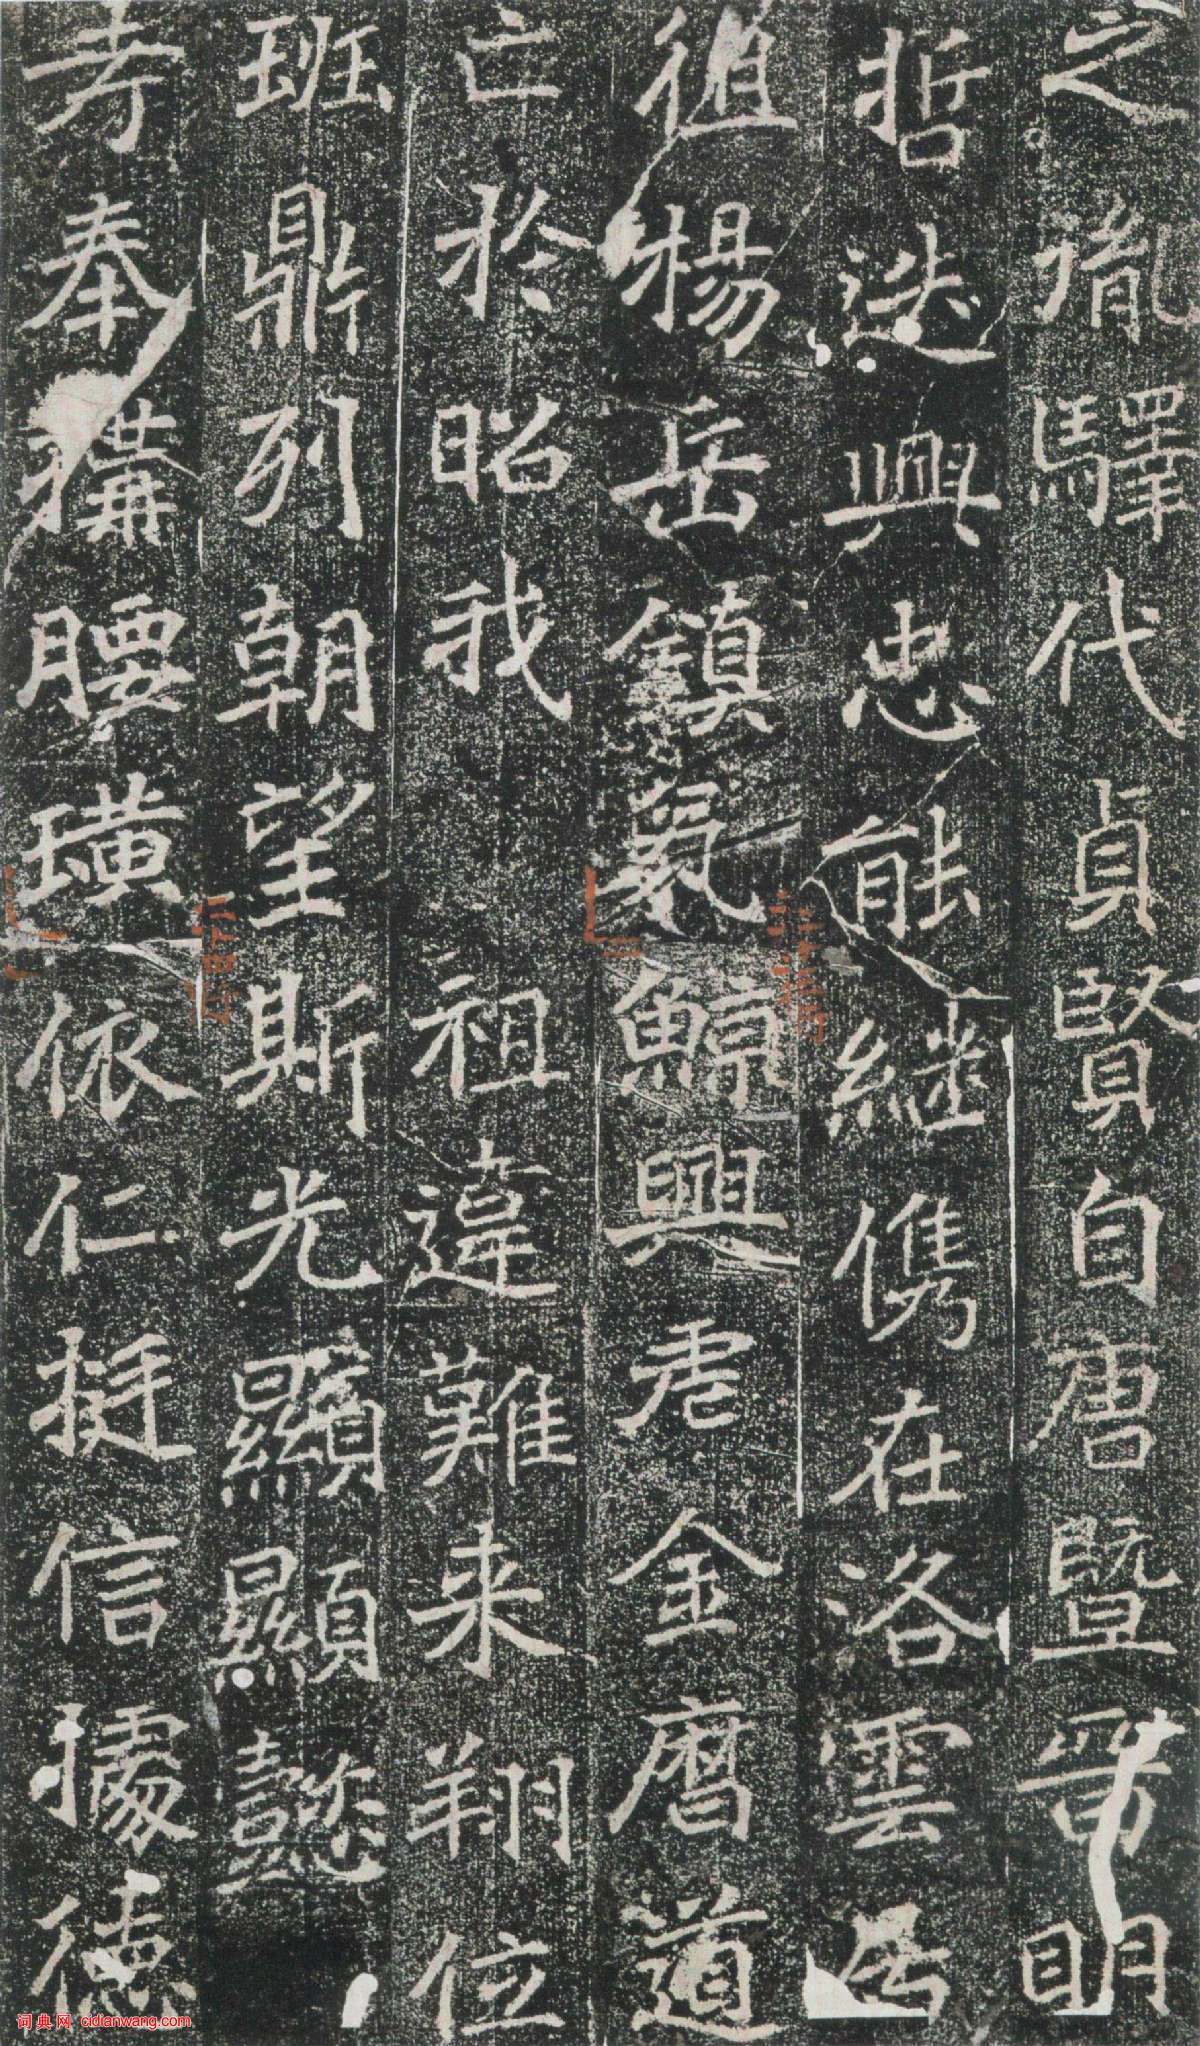 之胤驛代貞賢自唐暨晉明
哲迭興忠能継儁在洛雲居
徙楊岳鎮氛鯨興虐金曆道
亡於昭我 祖違難来翔位
班鼎列朝望斯光顯顯懿
考奉構腰璜依仁挺信據德
词典网 cidianwang.com